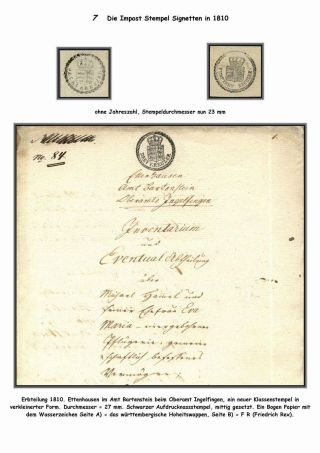 7 Die Impost Stempel Signetten in 1810
ohne Jahreszahl, Stempeldurchmesser nun 23 mm
No. 84.
Ettenhausen
Amt Bartenstein
Oberamts Ingelfingen
Inventarium
und
Eventual Abtheilung
über
Michael Hänel und
seiner Ehefrau Eva
Maria
Pflügerin,
Vermögen;
Erbteilung 1810. Ettenhausen im Amt Bartenstein beim Oberamt Ingelfingen, ein neuer Klassenstempel in
verkleinerter Form. Durchmesser = 27 mm. Schwarzer Aufdrucknassstempel, mittig gesetzt. Ein Bogen Papier mit
dem Wasserzeichen Seite A) = das württembergische Hoheitswappen, Seite B) = F R (Friedrich Rex).